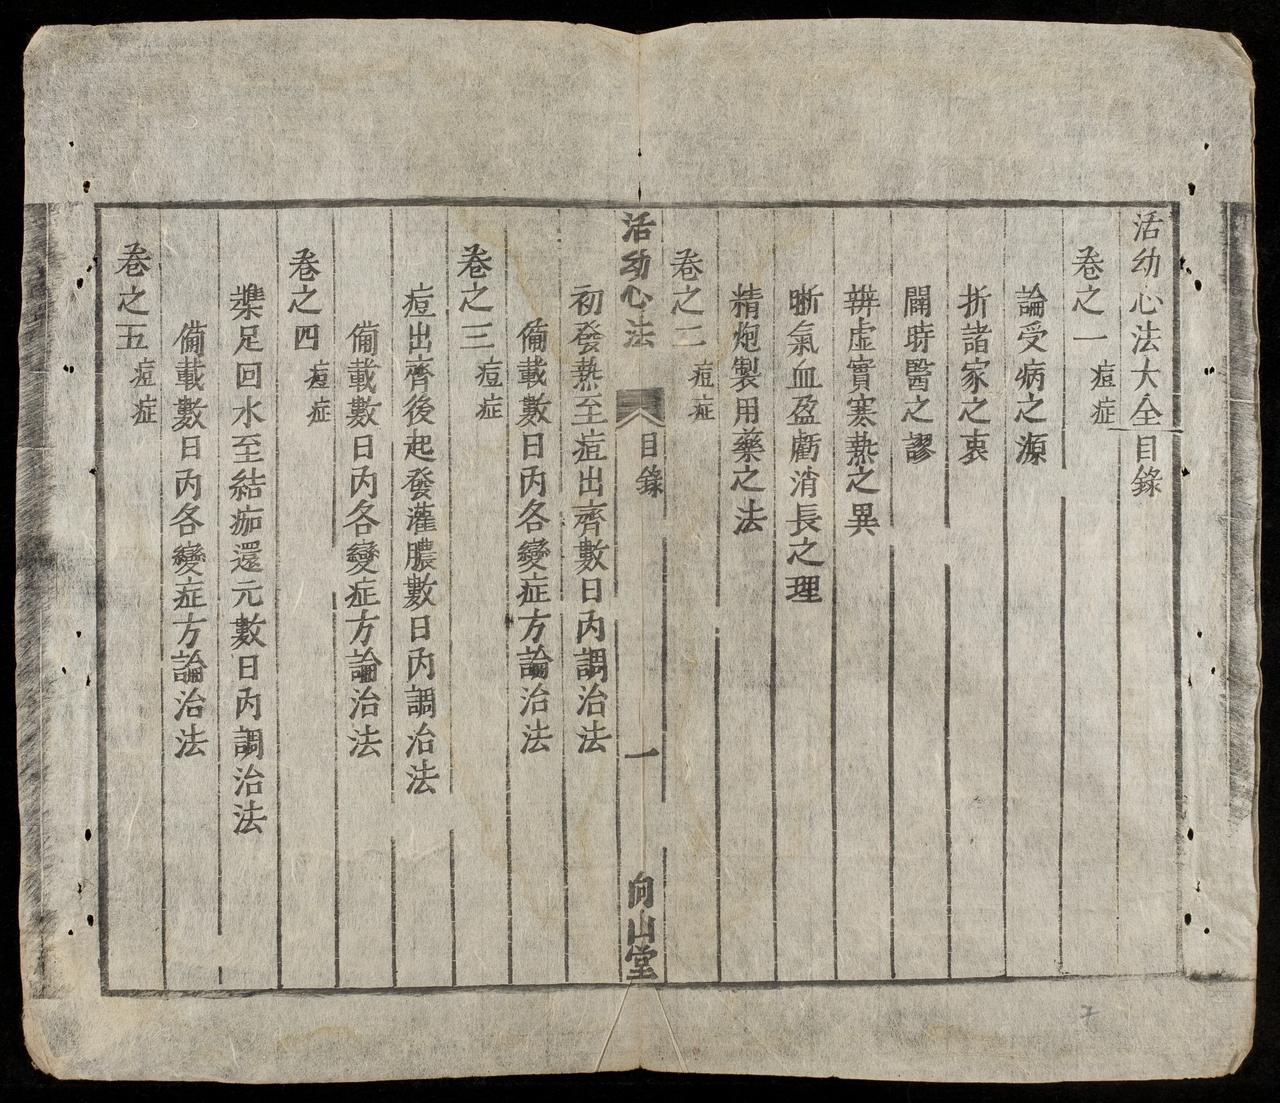 活幼心法大全目錄
卷之一 痘症
論受病之源
折諸家之衷
闢時醫之謬
辨虛實寒熱之異
晰氣血盈虧消長之理
精炮製用藥之法
卷之二 痘症
活幼心法 目錄 一 向山堂
初發熱至痘出齊數日內調治法
備載數日內各變症方論治法
卷之三 痘症
痘出齊後起發灌膿數日內調治法
備載數日內各變症方論治法
卷之四 痘症
漿足回水至結痂還元數日內調治法
備載數日內各變症方論治法
卷之五 痘症